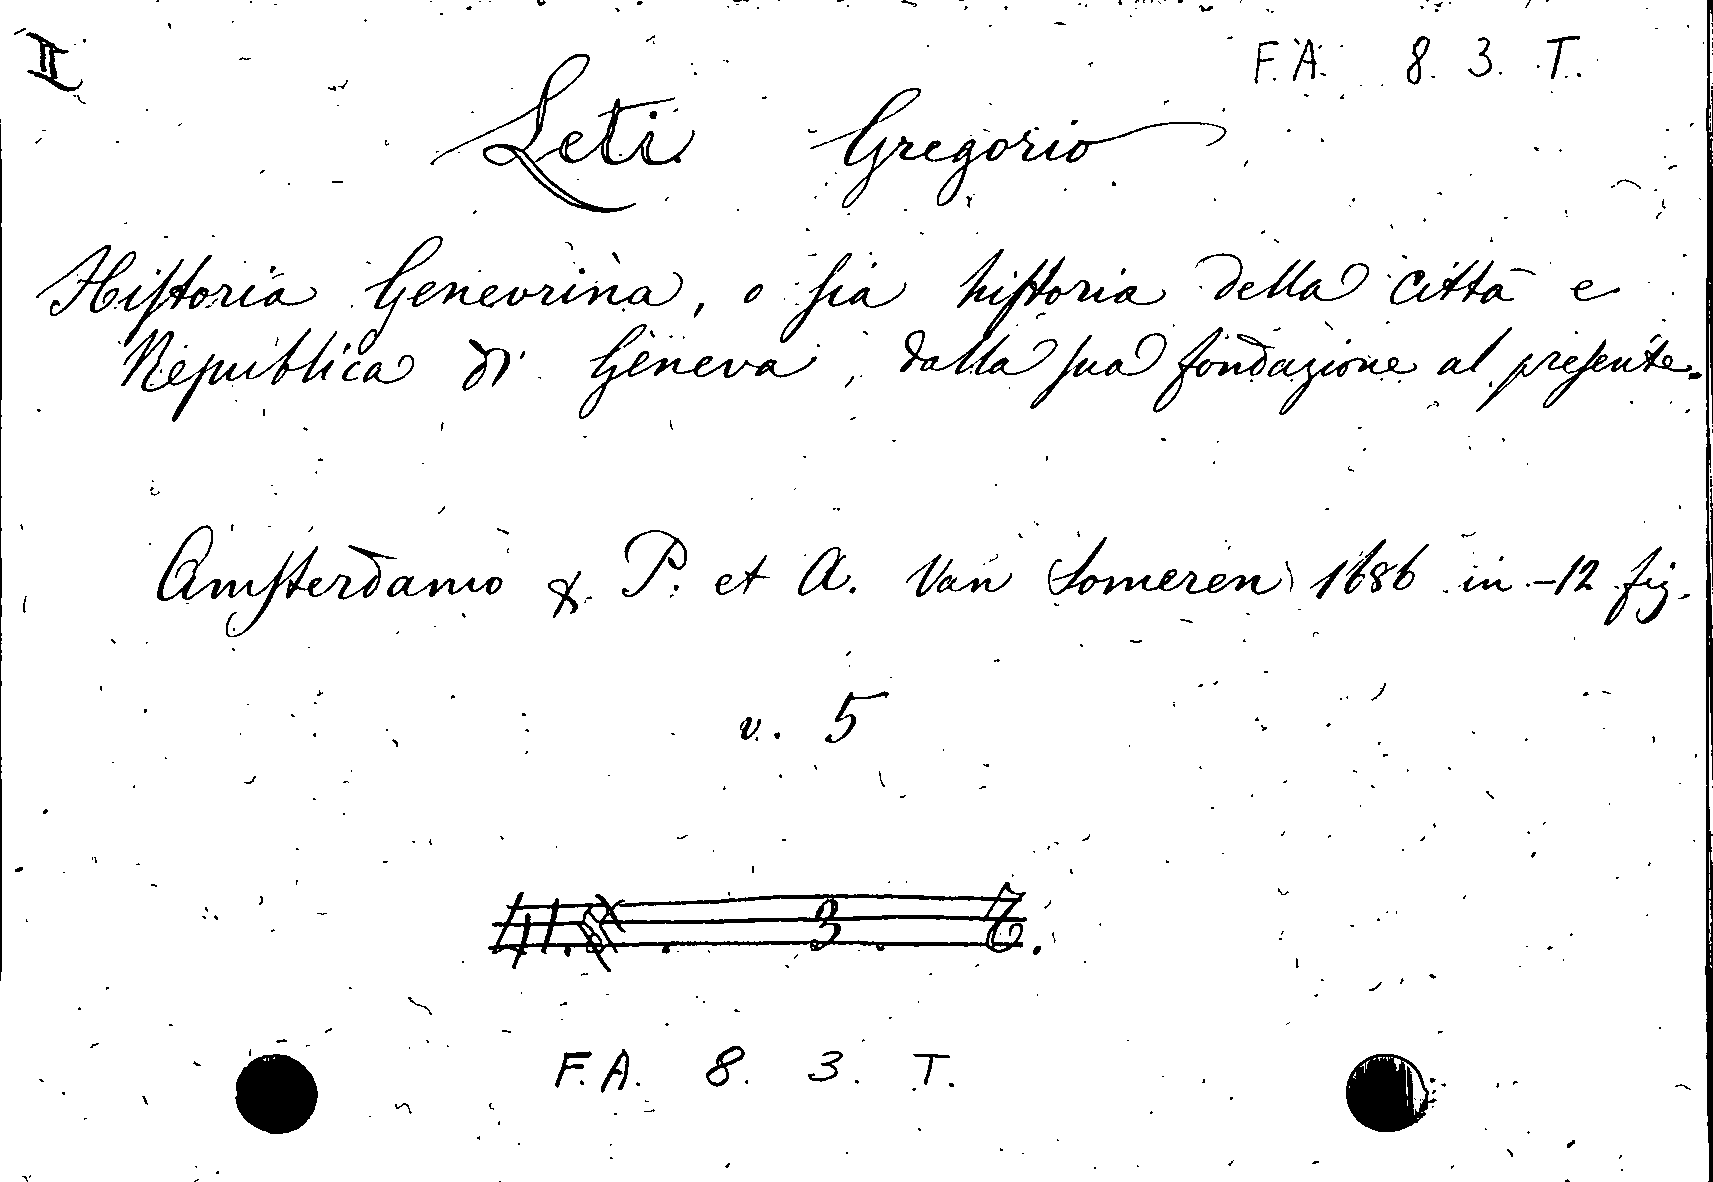 II
F. A. 8. 3. T.
Leti Gregorio
Historia Genevrina, o sia historia della città e
Republica di Geneva, dalla sua fondazione al presente.
Amsterdamo &. P. et A. Van Someren 1686 in-12 fig.
v. 5
F. A. 8. 3. T.